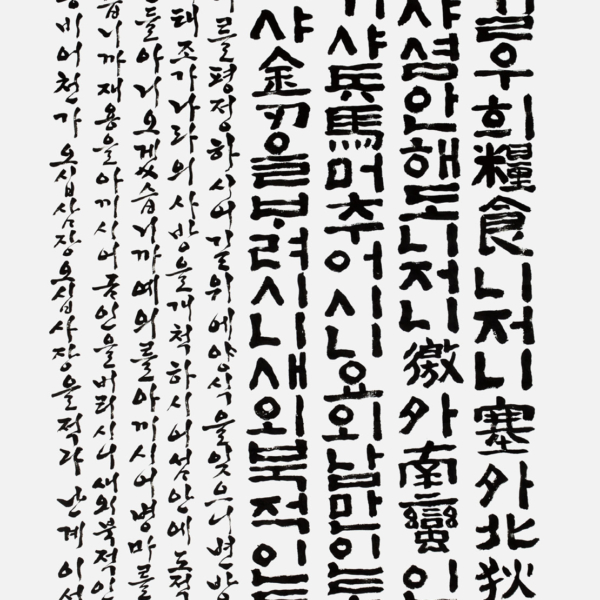 우희糧食니저니塞外北狄
샤셤안해도니저니徼外南蠻인
샤兵馬머추어시니요외남만인
샤金刃을ᄇᆞ려시니새외북적인
를평정하시어길위에양식을잊으니변방
태조가나라의사방을개척하시어섬안에도적
들아니오겠습니까예의를아끼시어병마를
습니까재용을아끼시어금인을버리시니새외북적인
비어천가 오십삼장오십사장을적다 난계이